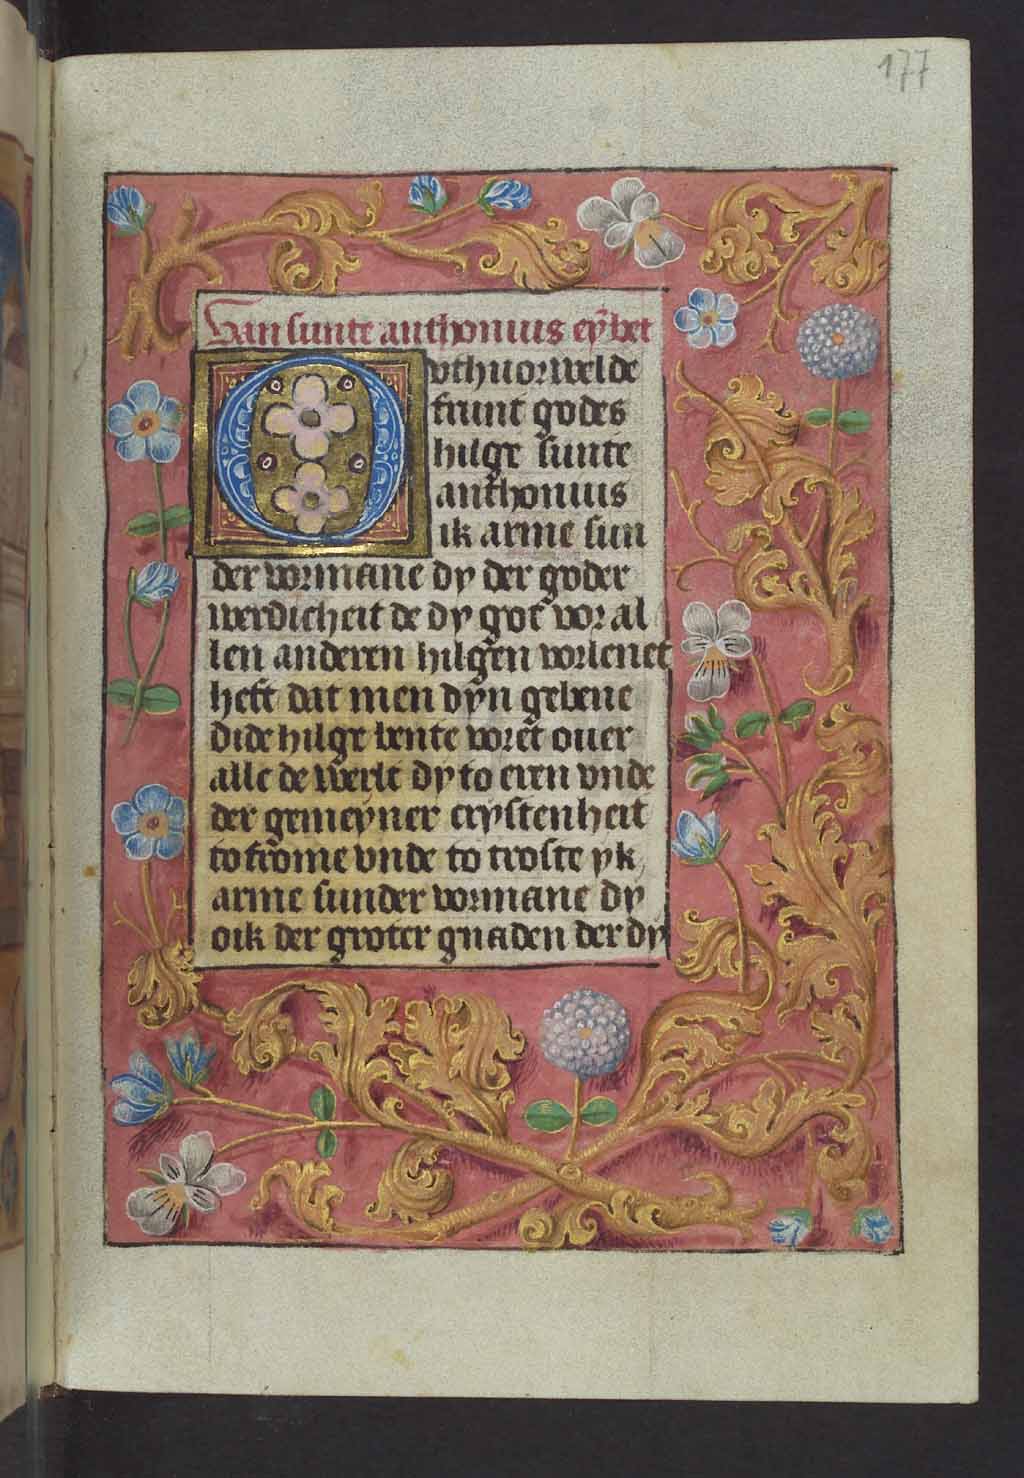 177
Van sunte anthonius eÿ bet
O vthuorwelde
frunt godes
hilge sunte
anthonius
ik arme sun
der vormane dy der goder
werdicheit de dy got vor al
len anderen hilgen vorlenet
heft dat men dÿn gebene
dide hilge bente voret ouer
alle de werlt dy to eren vnde
der gemeÿner crÿstenheit
to frome vnde to troste yk
arme sunder vormane dy
oik der groter gnaden der dy